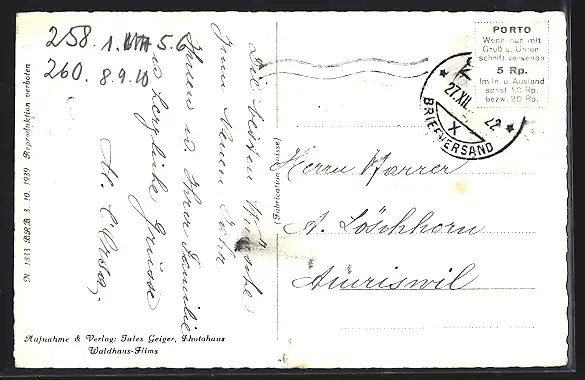 258. 1. 5.6
260. 8.9.10
Die besten Wünsche
zum Neuen Jahr
Ihnen u. Ihrer Familie
u. herzliche Grüsse
N 1833 BRB 3. 10. 1939 Reproduktion verboten
Aufnahme & Verlag: Jules Geiger, Photohaus
Waldhaus-Flims
(Fabrication Suisse)
PORTO
Wenn nur mit
Gruß u. Unter
schrift versehen
5 Rp.
Im In u. Ausland
sonst 10 Rp.
bezw. 20 Rp.
27.XII
22
X
BRIEFVERSAND
Herrn Pfarrer
A. Löschhorn
Amriswil